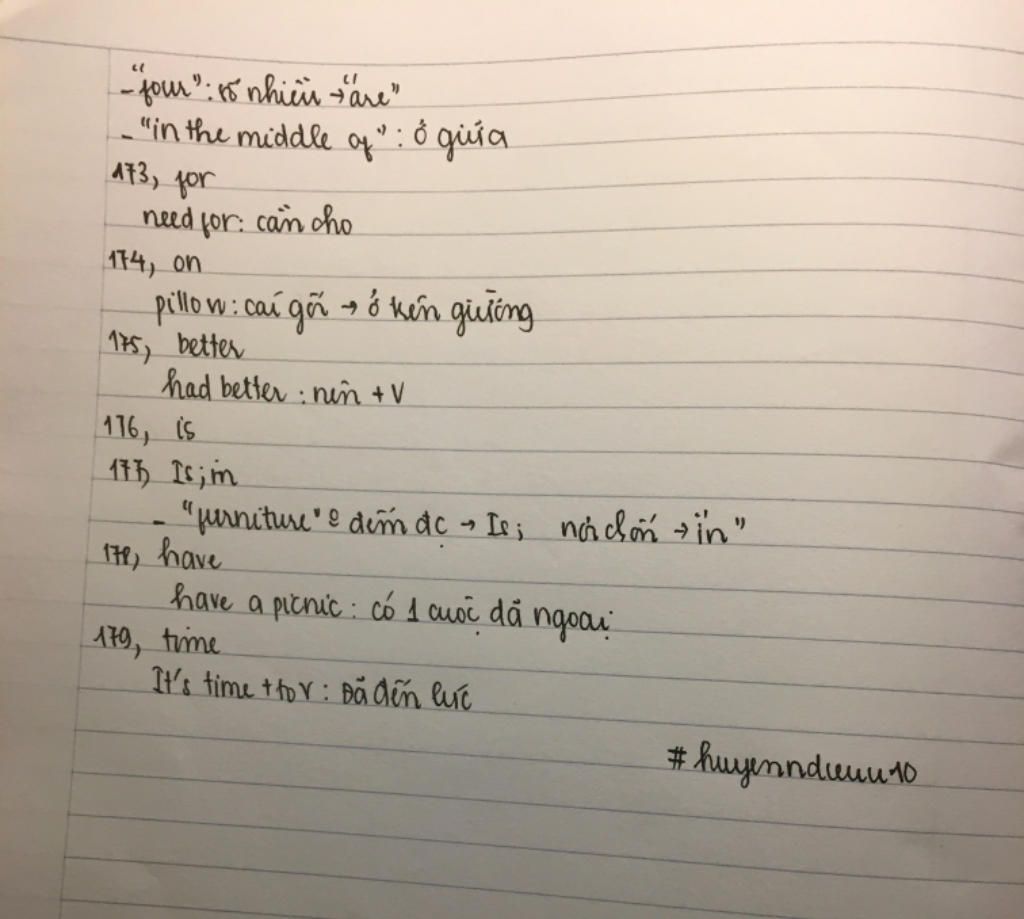 - "four": số nhiều → "are"
- "in the middle of": ở giữa
173, for
need for: cần cho
174, on
pillow: cái gối → ở trên giường
175, better
had better: nên + V
176, is
177, Is; in
- "furniture" đếm đc → Is; nơi chốn → "in"
178, have
have a picnic: có 1 cuộc dã ngoại
179, time
It's time + to V: Đã đến lúc
#huyenndieuu10